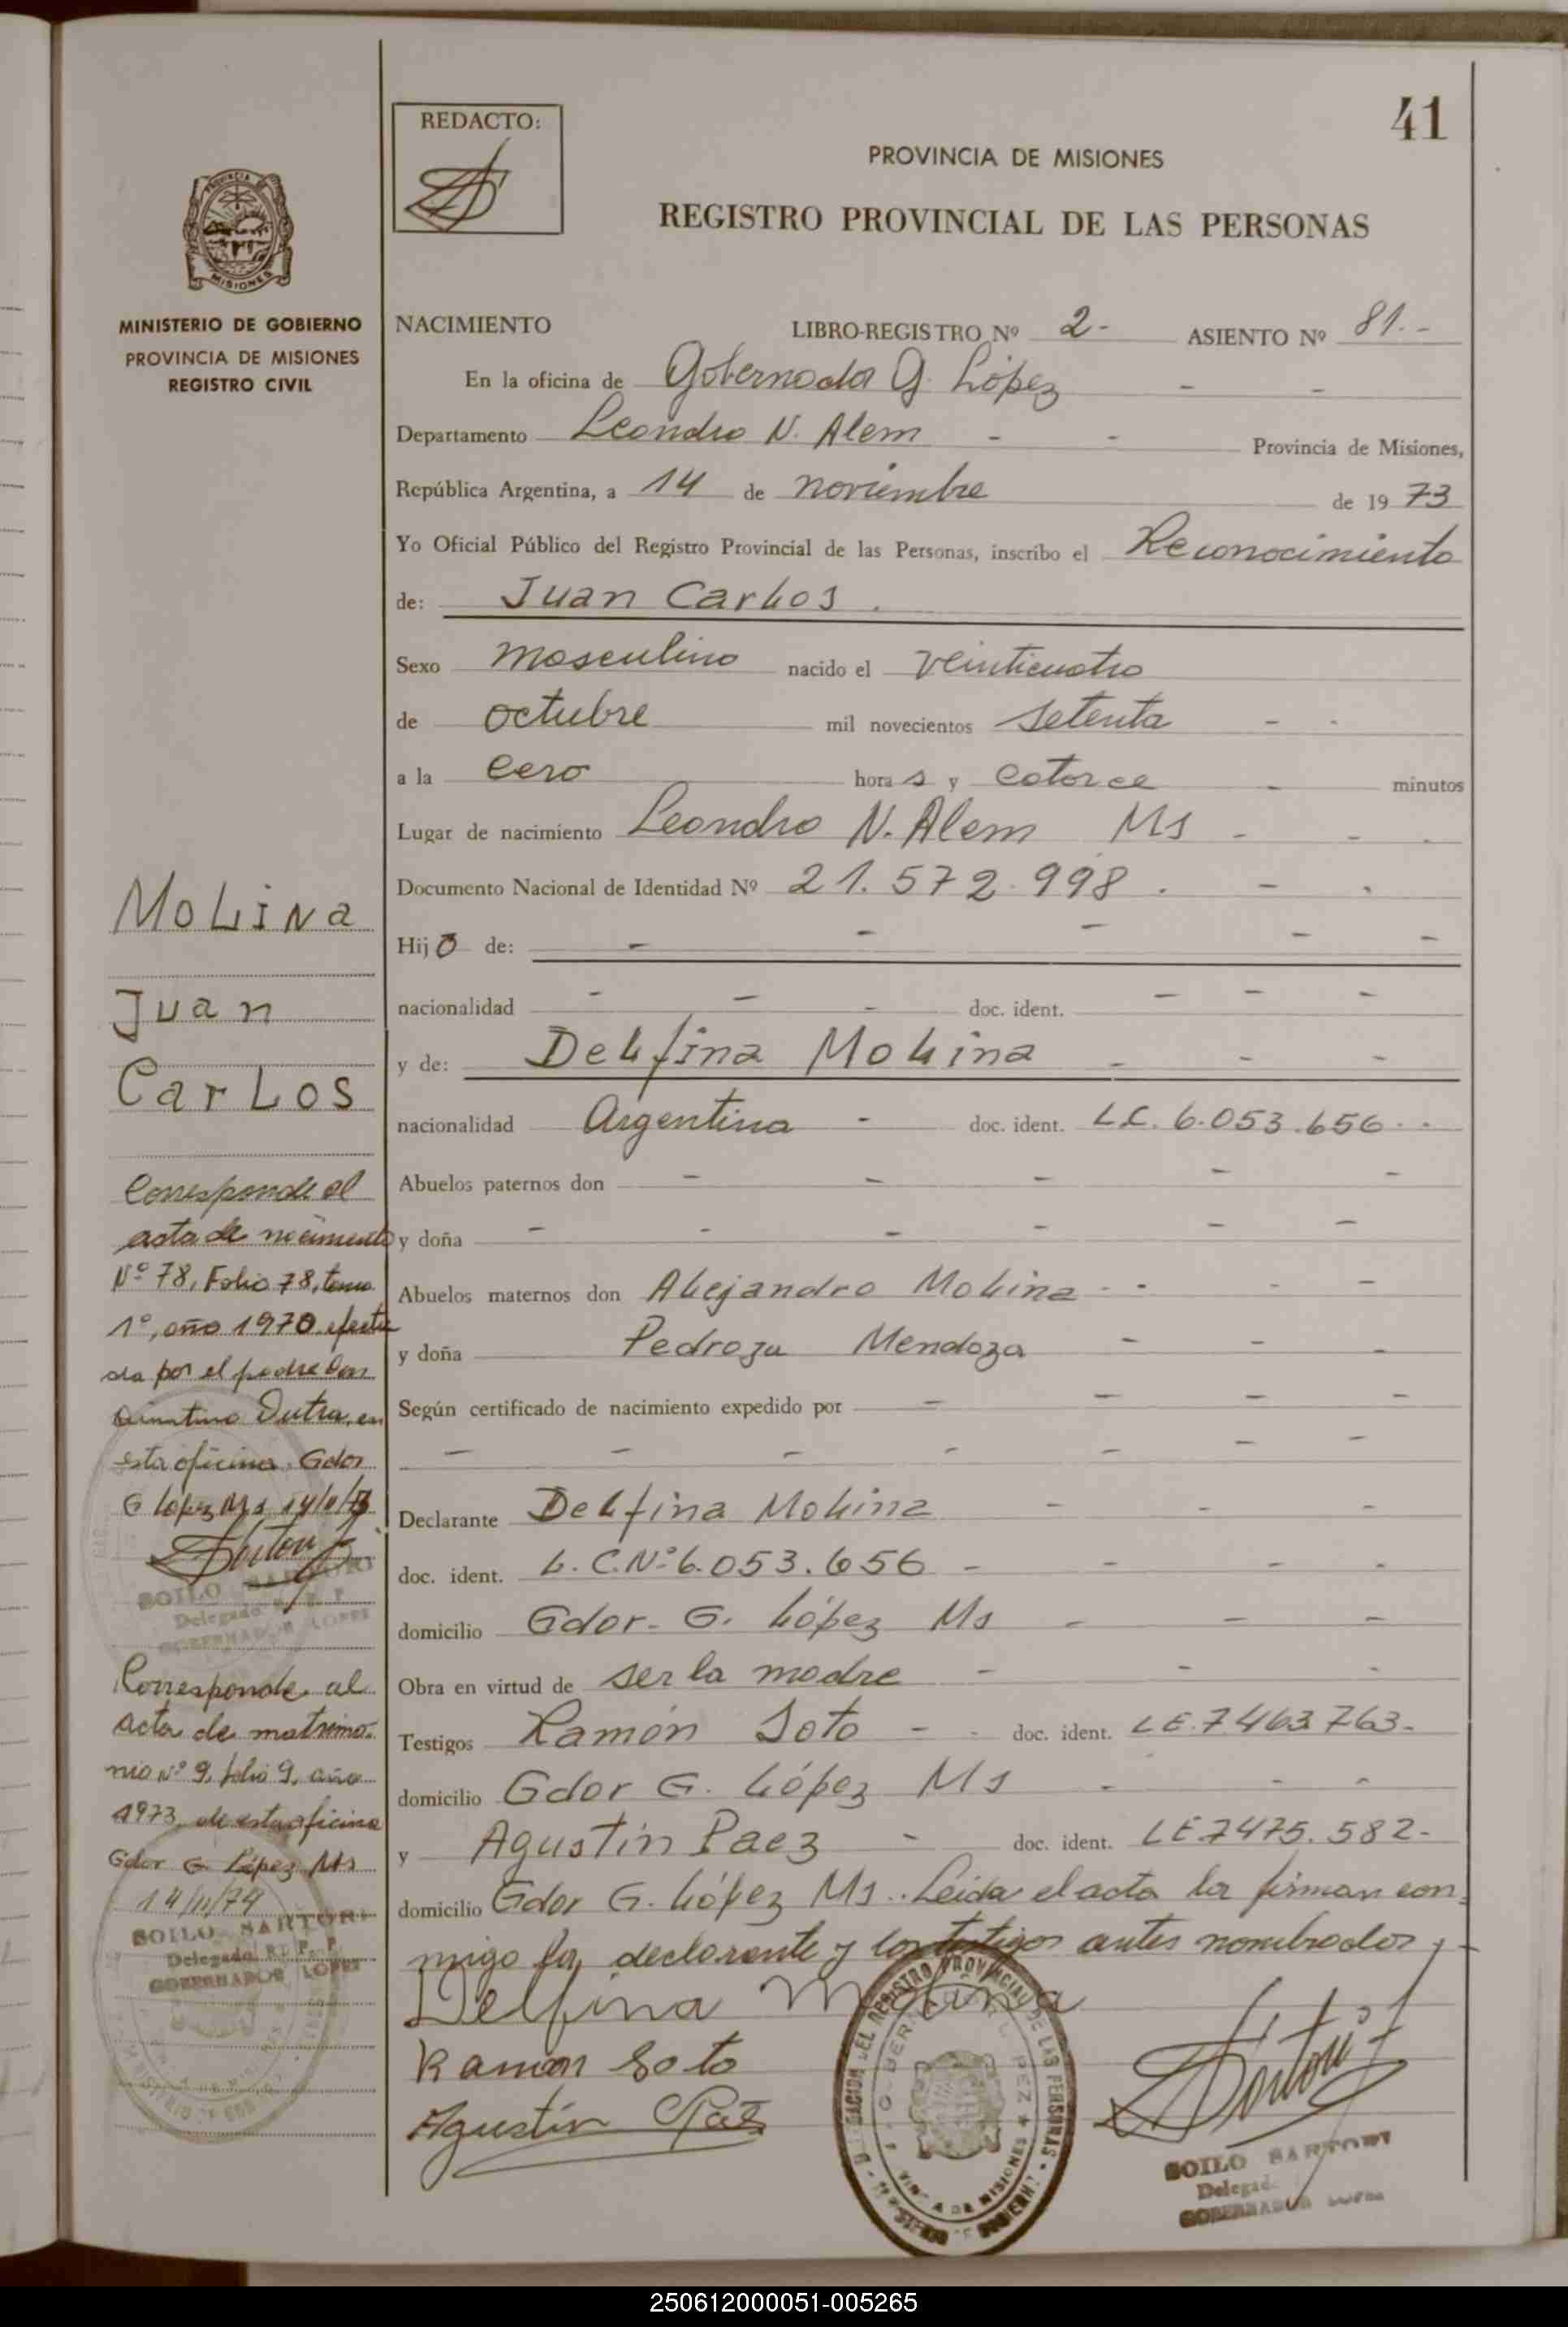 41
REDACTO:
PROVINCIA DE MISIONES
REGISTRO PROVINCIAL DE LAS PERSONAS
PROVINCIA DE
MISIONES
MINISTERIO DE GOBIERNO
PROVINCIA DE MISIONES
REGISTRO CIVIL
NACIMIENTO LIBRO-REGISTRO Nº 2- ASIENTO Nº 81.-
En la oficina de Gobernador G. López - -
Departamento Leandro N. Alem - - Provincia de Misiones,
República Argentina, a 14 de noviembre de 1973
Yo Oficial Público del Registro Provincial de las Personas, inscribo el Reconocimiento
de: Juan Carlos.
Sexo masculino nacido el veinticuatro
de octubre mil novecientos setenta - -
a la cero horas y catorce - minutos
Lugar de nacimiento Leandro N. Alem Ms - - -
Documento Nacional de Identidad Nº 21.572.998. - .
Hijo de: - - - - -
nacionalidad - - - doc. ident. - - -
y de: Delfina Molina - - -
nacionalidad Argentina - doc. ident. L.C. 6.053.656 - -
Abuelos paternos don - - - - -
y doña - - - - - -
Abuelos maternos don Alejandro Molina - - - -
y doña Pedroza Mendoza - - -
Según certificado de nacimiento expedido por - - - -
- - - - - - -
Declarante Delfina Molina - - -
doc. ident. L.C.Nº 6.053.656 - - - -
domicilio Gdor. G. López Ms - - -
Obra en virtud de ser la madre - - -
Testigos Ramón Soto - - doc. ident. LE.7463.763-
domicilio Gdor G. López Ms - - -
y Agustin Paez - doc. ident. LE 7475.582-
domicilio Gdor G. López Ms. Leida el acta la firman con-
migo la declarante y los testigos antes nombrados.-
Delfina Molina
Ramon Soto
Agustin Paez
SOILO SARTORI
Delegado
GOBERNADOR LOPEZ
MOLINA
Juan
Carlos
Corresponde al
acta de nacimiento
Nº 78, Folio 78, tomo
1º, año 1970 efectua
da por el padre Don
Dutra, en
esta oficina. Gdor
G López Ms 14/11/73
SOILO SARTORI
Delegado R. P. P.
GOBERNADOR LOPEZ
Corresponde al
acta de matrimo-
nio Nº 9, folio 9, año
1973, de esta oficina
Gdor G. López Ms
14/11/74
SOILO SARTORI
Delegado R. P. P.
GOBERNADOR LOPEZ
250612000051-005265